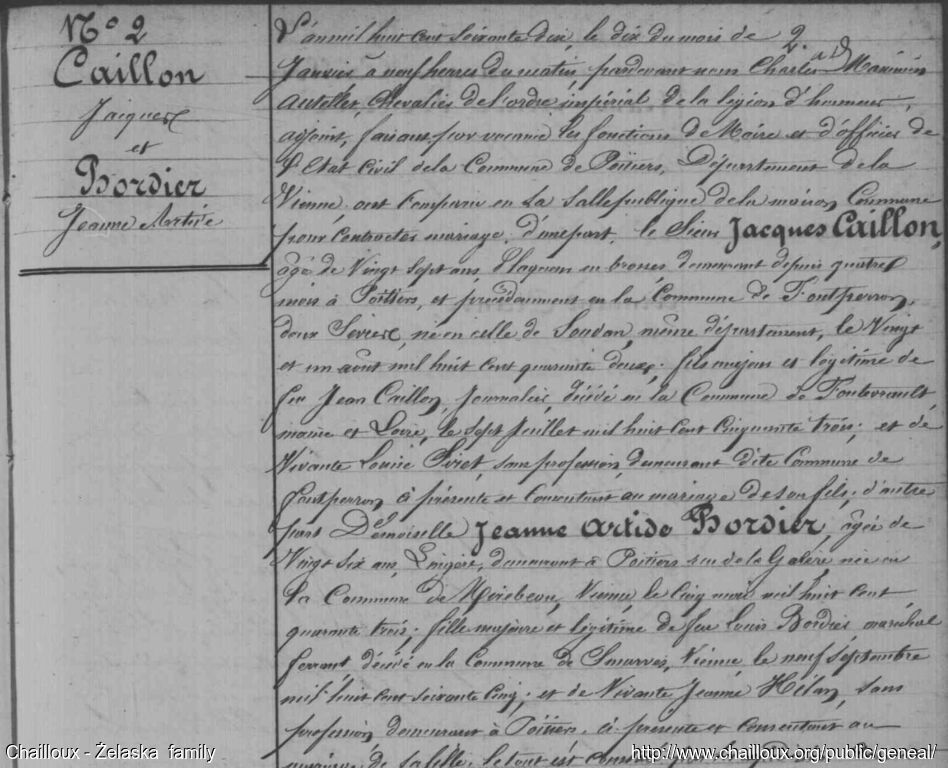 No 2
Caillon
Jacques
et
Bordier
Jeanne Artide
L'an mil huit cent soixante dix, le dix du mois de
Janvier à neuf heures du matin, pardevant nous Charles Maximin
chevalier de l'ordre impérial de la légion d'honneur,
adjoint, faisant par vacance les fonctions de Maire et d'officier de
l'Etat Civil de la Commune de Poitiers, Département de la
Vienne, ont comparu en la salle publique de la maison Commune
pour contracter mariage, d'une part, le Sieur Jacques Caillon,
âgé de Vingt sept ans, en brosses demeurant depuis quatre
mois à Poitiers, et précédemment en la Commune de Fontperron,
deux Sèvres, né en celle de Soudan, même département, le Vingt
et un août mil huit cent quarante deux; fils majeur et légitime de
feu Jean Caillon, Journalier, décédé en la Commune de Fontevrault,
maine et Loire, le sept Juillet mil huit cent cinquante trois; et de
Vivante Louise Piret, sans profession, demeurant dite Commune de
fontperron à présente et consentant au mariage de son fils; d'autre
part Demoiselle Jeanne Artide Bordier, âgée de
Vingt six ans, Lingère, demeurant à Poitiers rue de la Galère, née en
la Commune de Mirebeau, Vienne, le cinq mars mil huit cent
quarante trois; fille majeure et légitime de feu Louis Bordier, maréchal
ferrant, décédé en la Commune de Smarves, Vienne, le neuf septembre
mil huit cent soixante cinq; et de Vivante Jeanne Hélan, sans
profession, demeurant à Poitiers, à présente et consentant au
mariage de sa fille, le tout est
Chailloux - Żelaska family
http://www.chailloux.org/public/geneal/